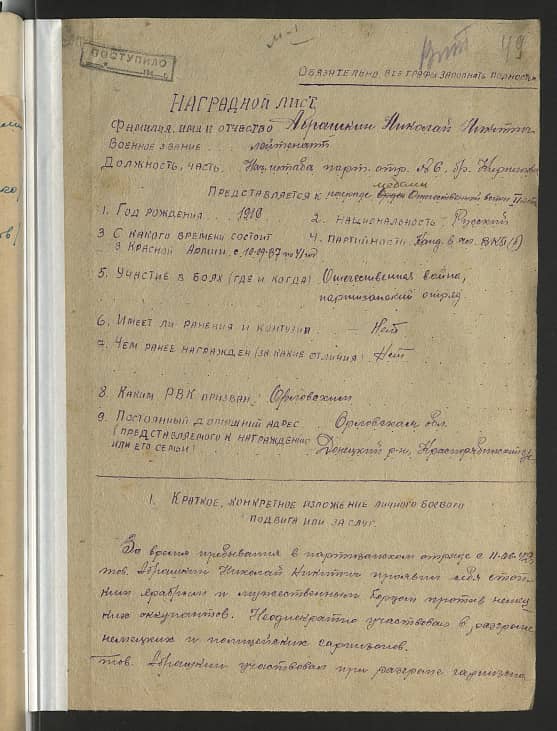 49
ПОСТУПИЛО
ОБЯЗАТЕЛЬНО ВСЕ ГРАФЫ ЗАПОЛНЯТЬ ПОЛНОСТЬЮ
НАГРАДНОЙ ЛИСТ
ФАМИЛИЯ, ИМЯ И ОТЧЕСТВО Абрашкин Николай Никитич
ВОЕННОЕ ЗВАНИЕ лейтенант
ДОЛЖНОСТЬ, ЧАСТЬ. Нач. штаба парт. отр. №6, бр.
ПРЕДСТАВЛЯЕТСЯ К награде медали Отечественной войны
1. ГОД РОЖДЕНИЯ . . . 1910
2. НАЦИОНАЛЬНОСТЬ: Русский
3 С КАКОГО ВРЕМЕНИ СОСТОИТ
В КРАСНОЙ АРМИИ
4. ПАРТИЙНОСТЬ Канд. в чл. ВКП(б)
5. УЧАСТИЕ В БОЯХ (ГДЕ И КОГДА) Отечественная война,
партизанский отряд
6. ИМЕЕТ ЛИ РАНЕНИЯ И КОНТУЗИИ . – Нет
7. ЧЕМ РАНЕЕ НАГРАЖДЕН (ЗА КАКИЕ ОТЛИЧИЯ) Нет
8. КАКИМ РВК ПРИЗВАН. Орловским
9. ПОСТОЯННЫЙ ДОМАШНИЙ АДРЕС
(ПРЕДСТАВЛЯЕМОГО К НАГРАЖДЕНИЮ
ИЛИ ЕГО СЕМЬИ)
Орловская обл.
р-н,
1. КРАТКОЕ, КОНКРЕТНОЕ ИЗЛОЖЕНИЕ ЛИЧНОГО БОЕВОГО
ПОДВИГА ИЛИ ЗАСЛУГ.
За время пребывания в партизанском отряде с
тов. Абрашкин Николай Никитич проявил себя стой-
ким храбрым и мужественным борцом против немец-
ких оккупантов. Неоднократно участвовал в разгроме
немецких и полицейских гарнизонов.
тов. Абрашкин участвовал при разгроме гарнизона